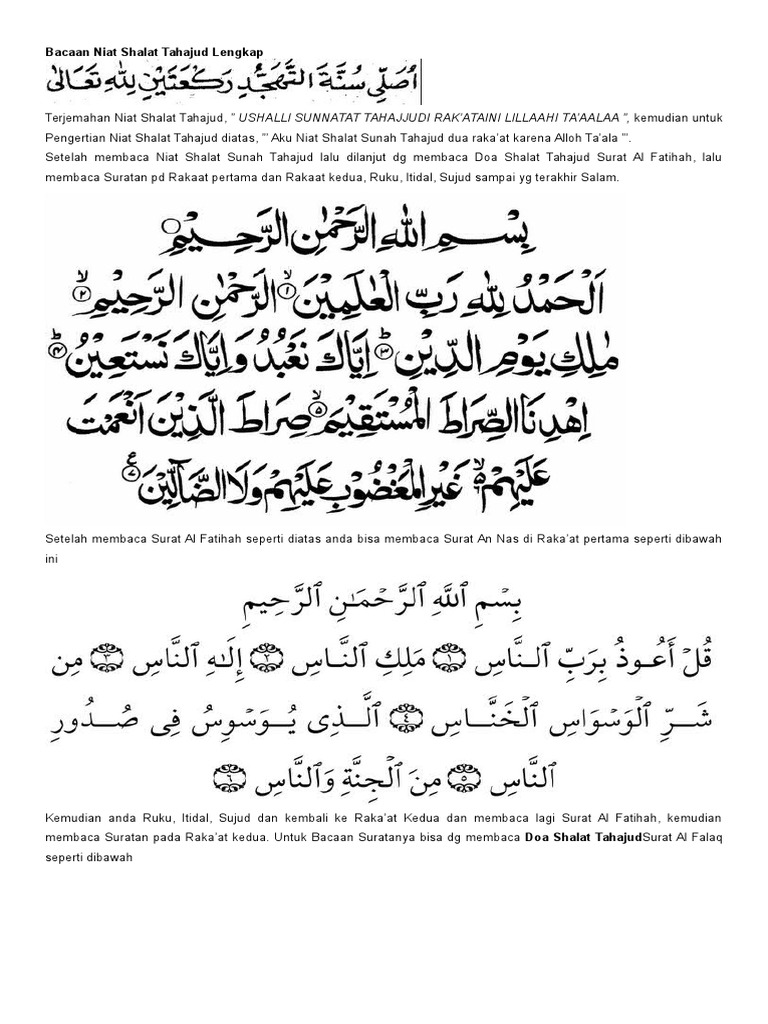 Bacaan Niat Shalat Tahajud Lengkap
اُصَلِّى سُنَّةَ التَّهَجُّدِ رَكْعَتَيْنِ لِلّٰهِ تَعَالَىٰ
Terjemahan Niat Shalat Tahajud, " USHALLI SUNNATAT TAHAJJUDI RAK'ATAINI LILLAAHI TA'AALAA ", kemudian untuk
Pengertian Niat Shalat Tahajud diatas, "' Aku Niat Shalat Sunah Tahajud dua raka'at karena Alloh Ta'ala "'.
Setelah membaca Niat Shalat Sunah Tahajud lalu dilanjut dg membaca Doa Shalat Tahajud Surat Al Fatihah, lalu
membaca Suratan pd Rakaat pertama dan Rakaat kedua, Ruku, Itidal, Sujud sampai yg terakhir Salam.
بِسْمِ اللهِ الرَّحْمٰنِ الرَّحِيْمِ
اَلْحَمْدُ لِلّٰهِ رَبِّ الْعٰلَمِيْنَۙ ﴿١﴾ الرَّحْمٰنِ الرَّحِيْمِۙ ﴿٢﴾
مٰلِكِ يَوْمِ الدِّيْنِۗ ﴿٣﴾ اِيَّاكَ نَعْبُدُ وَاِيَّاكَ نَسْتَعِيْنُۗ ﴿٤﴾
اِهْدِنَا الصِّرَاطَ الْمُسْتَقِيْمَۙ ﴿٥﴾ صِرَاطَ الَّذِيْنَ اَنْعَمْتَ
عَلَيْهِمْ ﴿٦﴾ۙ غَيْرِ الْمَغْضُوْبِ عَلَيْهِمْ وَلَا الضَّاۤلِّيْنَ ﴿٧﴾ ع
Setelah membaca Surat Al Fatihah seperti diatas anda bisa membaca Surat An Nas di Raka'at pertama seperti dibawah
ini
بِسْمِ ٱللَّهِ ٱلرَّحْمَـٰنِ ٱلرَّحِيمِ
قُلْ أَعُوذُ بِرَبِّ ٱلنَّاسِ ﴿١﴾ مَلِكِ ٱلنَّاسِ ﴿٢﴾ إِلَـٰهِ ٱلنَّاسِ ﴿٣﴾ مِن
شَرِّ ٱلْوَسْوَاسِ ٱلْخَنَّاسِ ﴿٤﴾ ٱلَّذِى يُوَسْوِسُ فِى صُدُورِ
ٱلنَّاسِ ﴿٥﴾ مِنَ ٱلْجِنَّةِ وَٱلنَّاسِ ﴿٦﴾
Kemudian anda Ruku, Itidal, Sujud dan kembali ke Raka'at Kedua dan membaca lagi Surat Al Fatihah, kemudian
membaca Suratan pada Raka'at kedua. Untuk Bacaan Suratanya bisa dg membaca Doa Shalat TahajudSurat Al Falaq
seperti dibawah